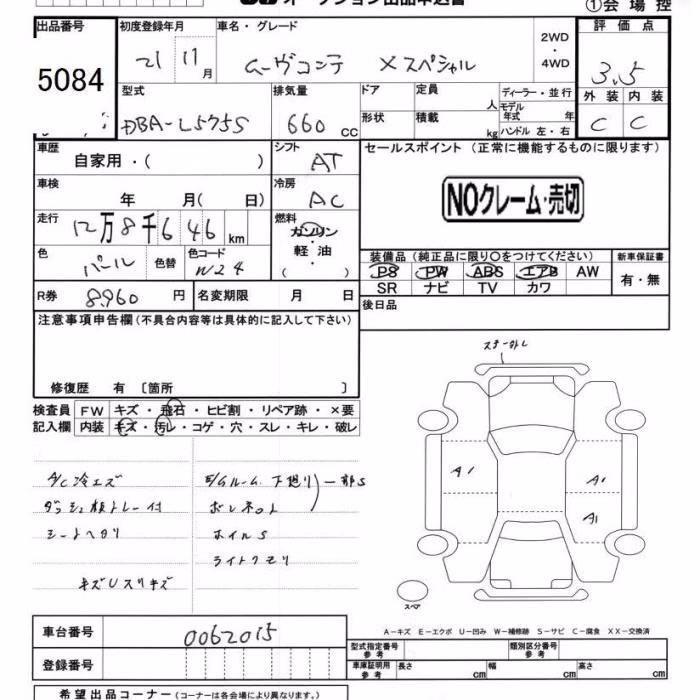 オークション出品申込書
①会場控
出品番号
5084
初度登録年月
21 11月
車名・グレード
ムーヴコンテ Xスペシャル
2WD
・
4WD
評価点
3.5
外装 内装
C C
型式
DBA-L575S
排気量
660 cc
ドア
定員
人
形状
積載
kg
ディーラー・並行
モデル年式 年
ハンドル 左・右
車歴
自家用・( )
シフト
AT
車検
年 月( 日)
冷房
AC
走行
12万8千646 km
燃料
ガソリン
・
軽油
・
( )
色
パール
色替
色コード
W24
R券 8,960 円
名変期限 月 日
セールスポイント (正常に機能するものに限ります)
NOクレーム・売切
装備品 (純正品に限り○をつけてください)
PS PW ABS エアB AW
SR ナビ TV カワ
新車保証書
有・無
後日品
注意事項申告欄 (不具合内容等は具体的に記入して下さい)
修復歴 有 〔箇所 〕
検査員記入欄
FW キズ・飛石・ヒビ割・リペア跡・×要
内装 キズ・汚レ・コゲ・穴・スレ・キレ・破レ
A/C冷エズ
ダッシュ板トレー付
シートヘタリ
キズUスリキズ
E/Gルーム 下廻リ 一部S
ボレネット
ホイルS
ライトクモリ
A1
A1
A1
スペア
A-キズ E-エクボ U-凹み W-補修跡 S-サビ C-腐食 XX-交換済
車台番号
0062015
登録番号
型式指定番号
参考
類別区分番号
参考
車庫証明用
参考
長さ cm 幅 cm 高さ cm
希望出品コーナー (コーナーは各会場により異なります。)